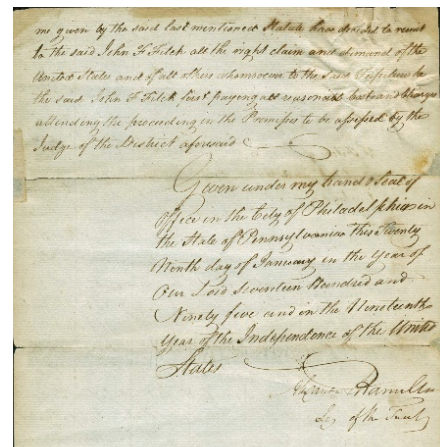 me given by the said last mentioned Statute have decided to remit
to the said John F Fitch all the right claim and demand of the
United States and of all others whomsoever to the said Forfeiture he
the said John F Fitch first paying all reasonable Costs and Charges
attending the proceeding in the Premises to be assessed by the
Judge of the District aforesaid
Given under my hand & Seal of
Office in the City of Philadelphia in
the State of Pennsylvania this Twenty
Ninth day of January in the year of
Our Lord Seventeen Hundred and
Ninety five and in the Nineteenth
Year of the Independence of the United
States
Hamilton
Sey of the Treasy